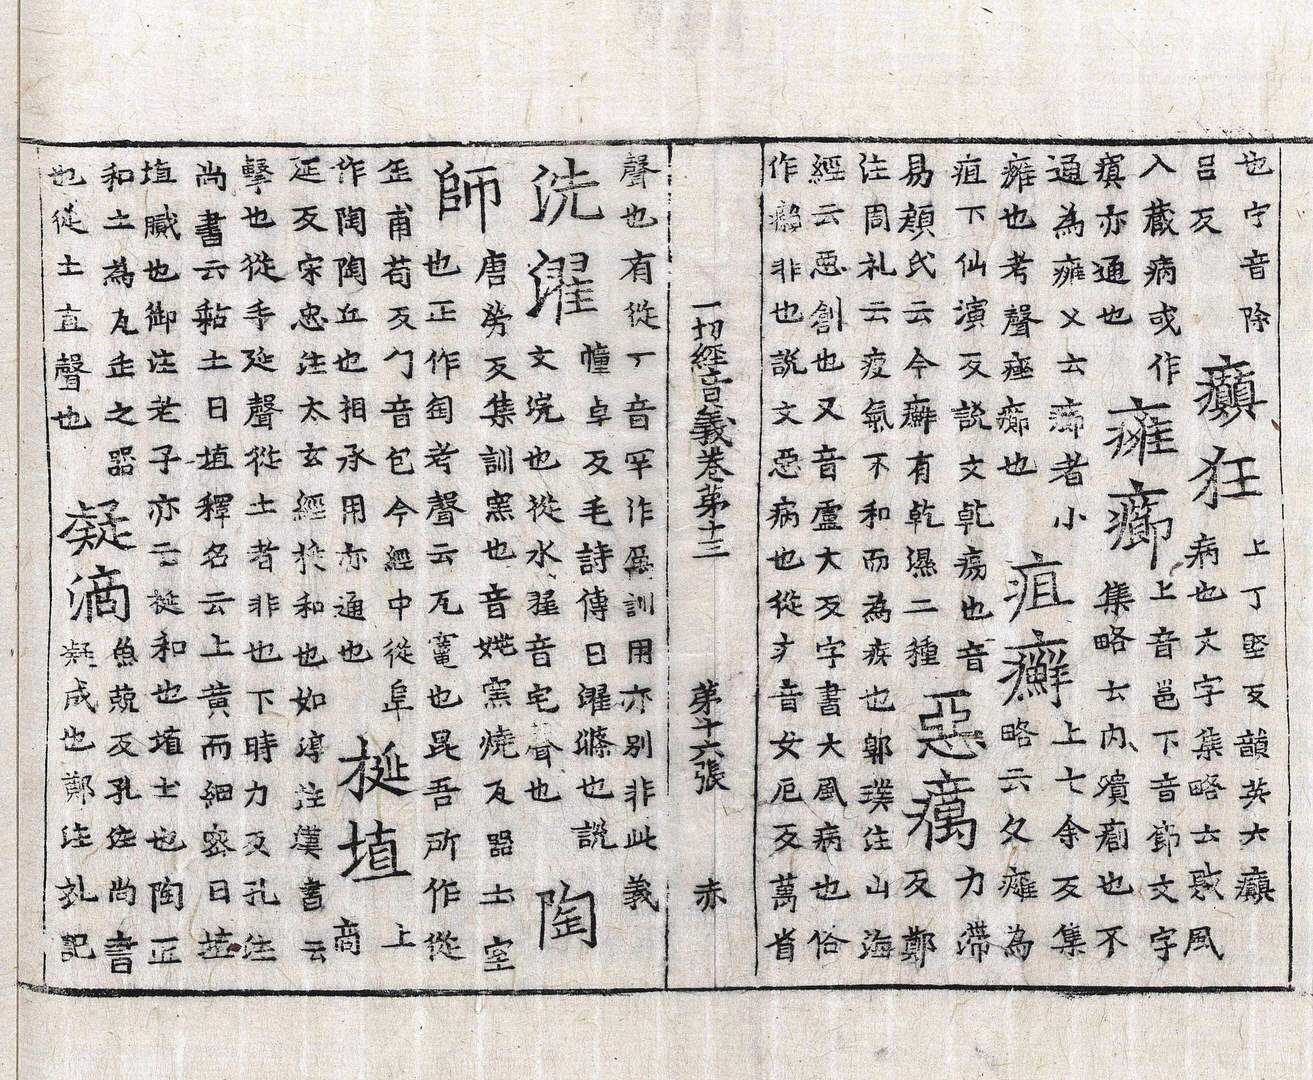 也宁音除
呂反
癲狂
上丁堅反韻英云癲
病也文字集略云賊風
入藏病或作
瘨亦通也
癕癤
上音邕下音節文字
集略云内䐴瘡也不
通為癰久云癤者小
癰也考聲痤癤也
疽癬
上七余反集
略云久癰為
疽下仙演反説文乾瘍也音
易顔氏云今癬有乾濕二種
惡癘
力滯
反鄭
注周礼云疫氣不和而為疾也郭璞注山海
經云惡創也又音盧大反字書大風病也俗
作癩非也説文惡病也從疒音女厄反萬省
一切經音義卷苐十三 苐廾六張 赤
聲也有從丁音罕作訓用亦別非此義
洗濯
幢卓反毛詩傳曰濯滌也説
文浣也從水翟音宅聲也
陶
師
唐勞反集訓窯也音姚窯燒瓦器土室
也正作匋考聲云瓦竈也昆吾所作從
缶甫苟反勹音包今經中從阜
作陶陶丘也相承用亦通也
挻埴
上
商
延反宋忠注太玄經挻和也如淳注漢書云
擊也從手延聲從土者非也下時力反孔注
尚書云黏土曰埴釋名云土黄而細密曰埴
埴膱也御注老子亦云挻和也埴土也陶正
和土為瓦缶之器
也從土直聲也
凝滴
魚兢反孔注尚書
凝成也鄭注礼記